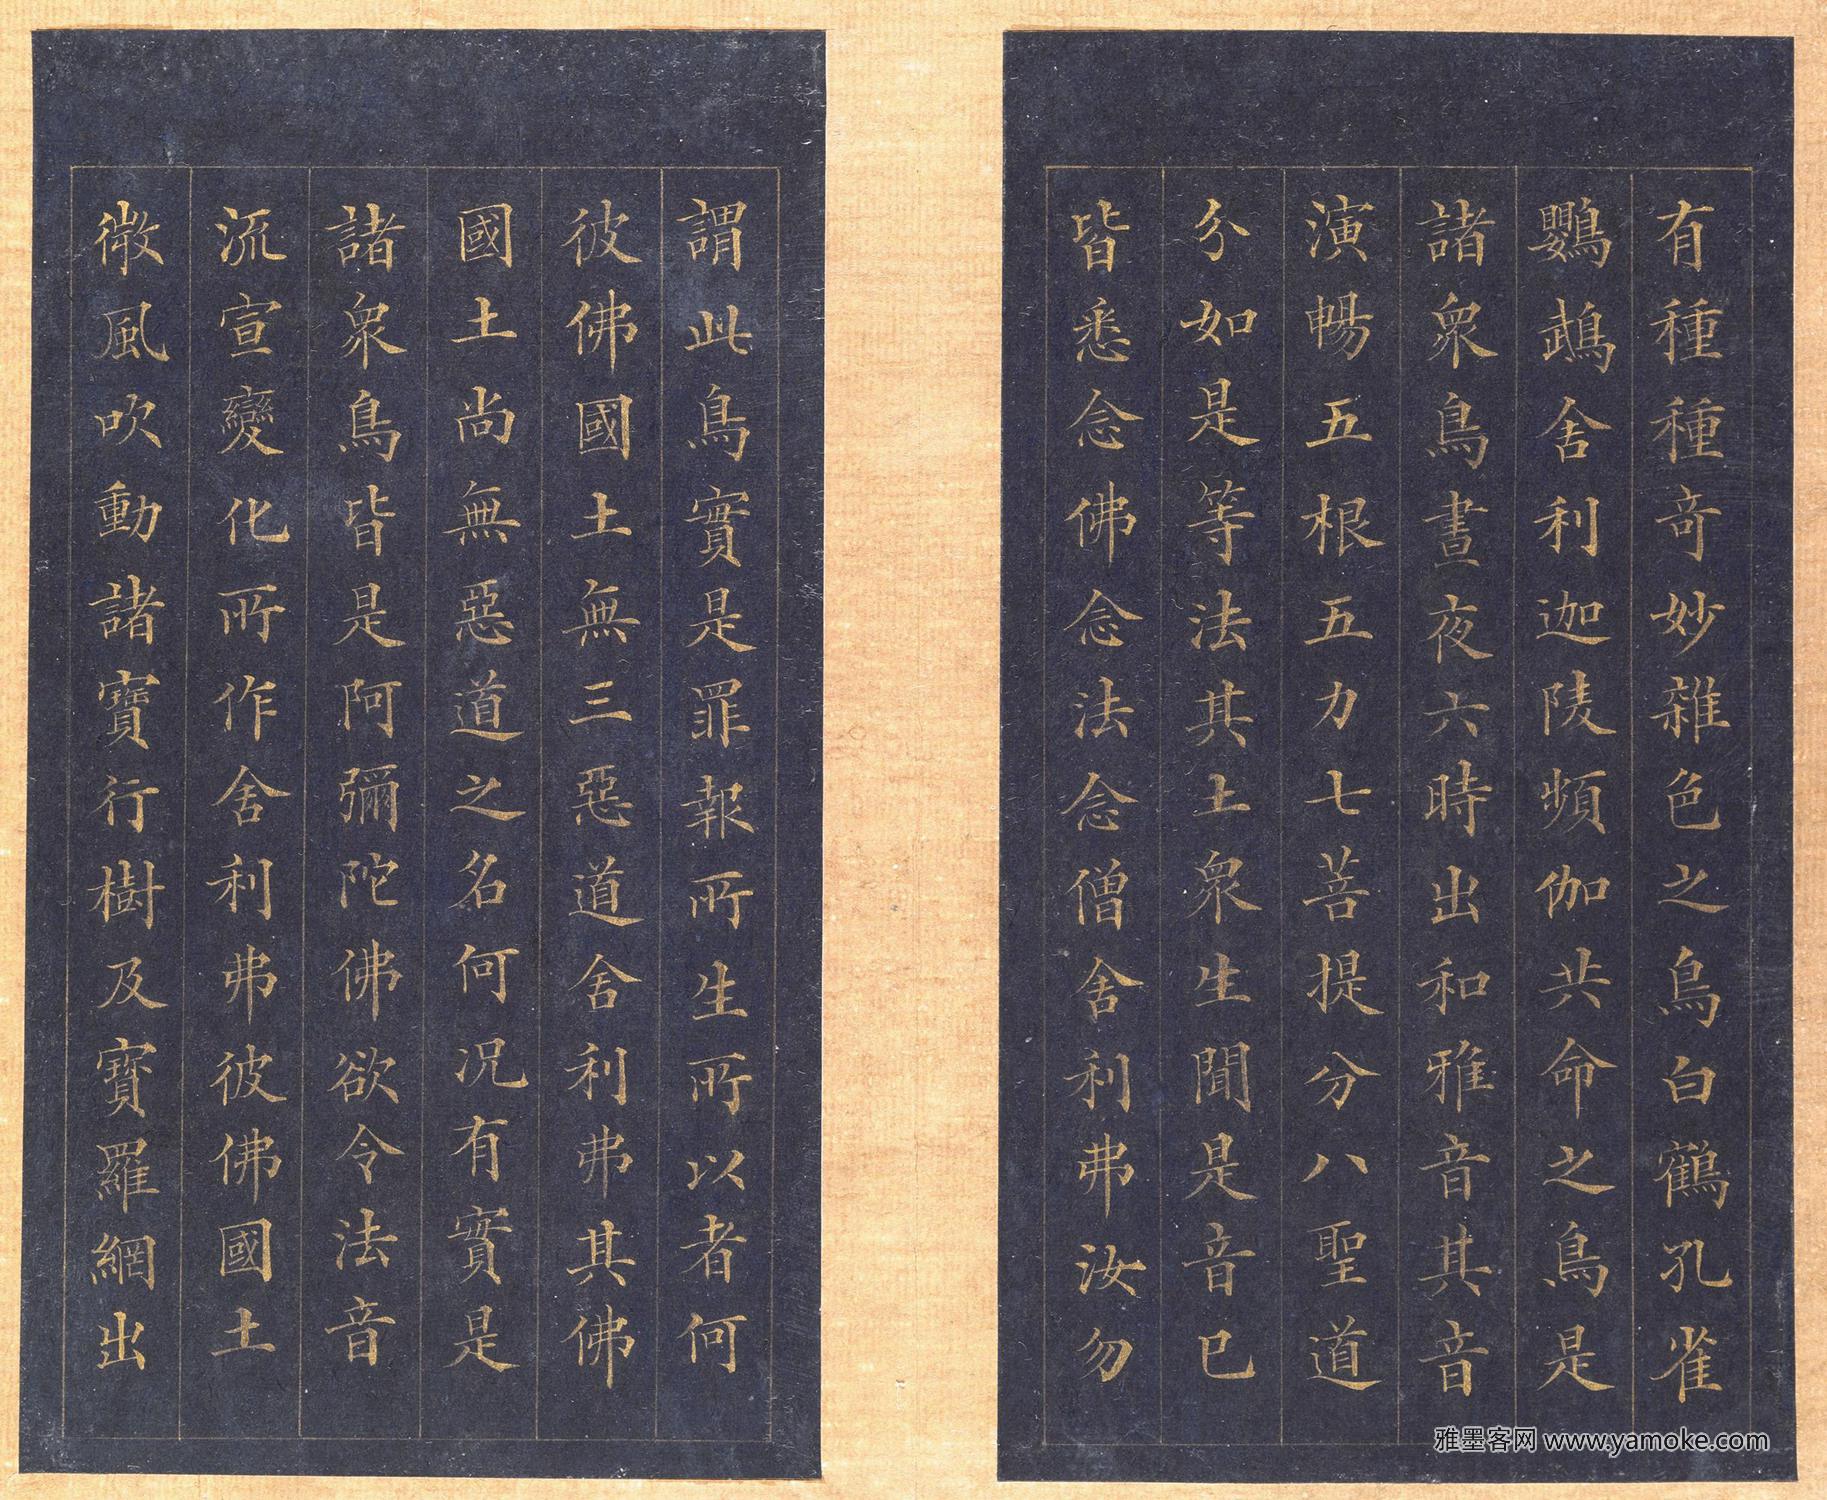 有種種奇妙雜色之鳥白鶴孔雀
鸚鵡舍利迦陵頻伽共命之鳥是
諸衆鳥晝夜六時出和雅音其音
演暢五根五力七菩提分八聖道
分如是等法其土衆生聞是音已
皆悉念佛念法念僧舍利弗汝勿
謂此鳥實是罪報所生所以者何
彼佛國土無三惡道舍利弗其佛
國土尚無惡道之名何况有實是
諸衆鳥皆是阿彌陀佛欲令法音
流宣變化所作舍利弗彼佛國土
微風吹動諸寶行樹及寳羅網出
雅墨客网 www.yamoke.com